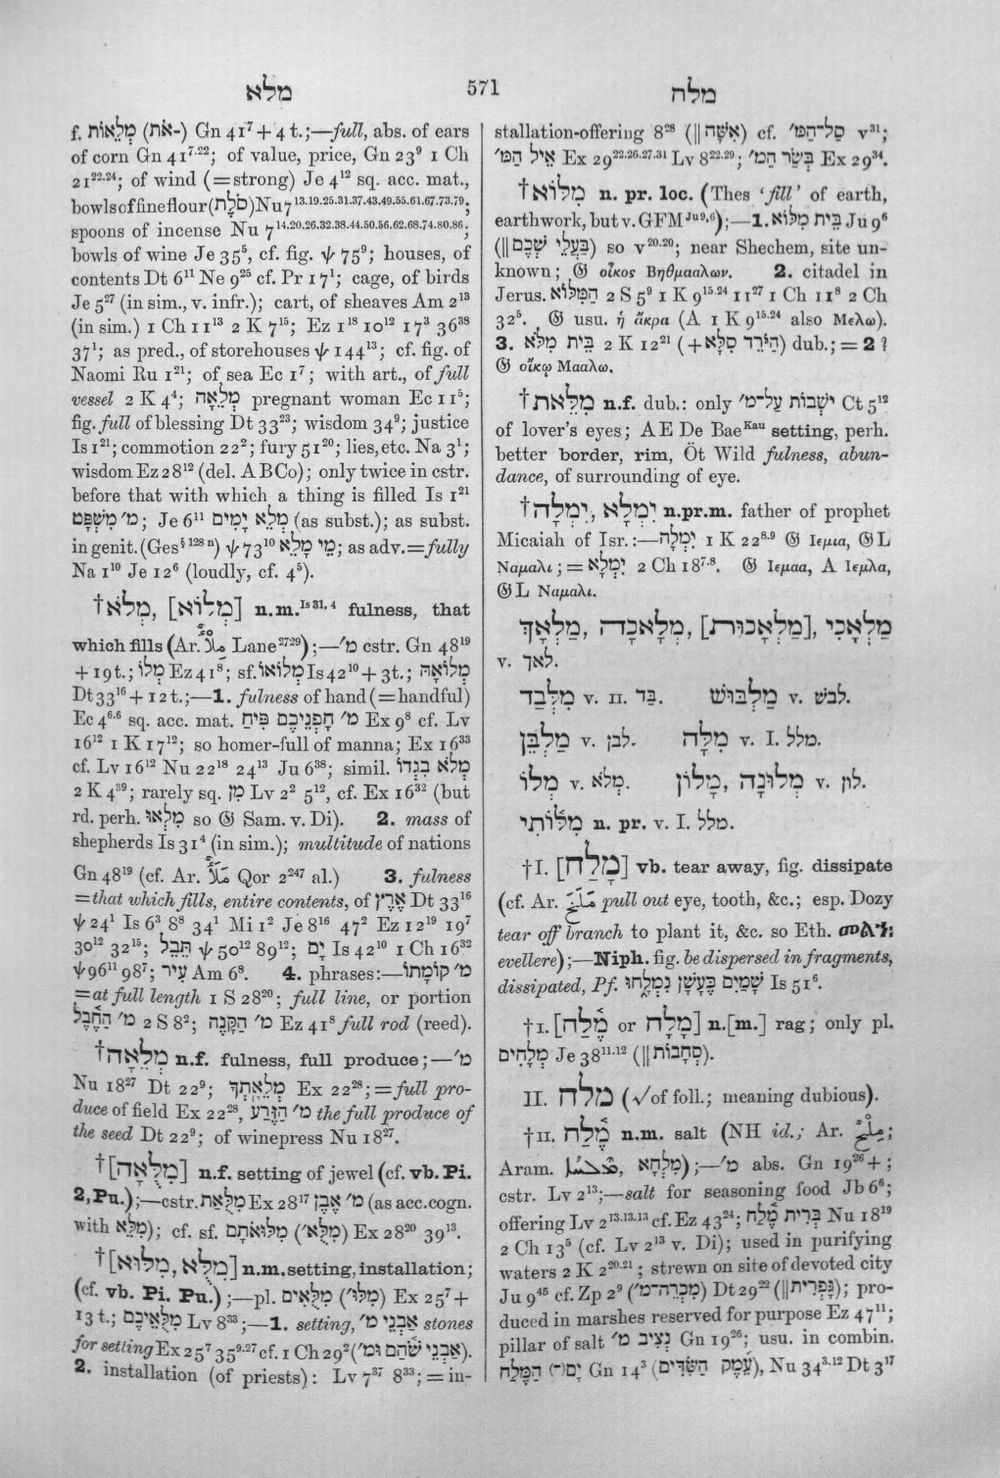 מלא
571
מלח
f. מְלֵאוֹת (-אֹת) Gn 41⁷ + 4 t.;—full, abs. of ears
of corn Gn 41⁷·²²; of value, price, Gn 23⁹ 1 Ch
21²²·²⁴; of wind (=strong) Je 4¹² sq. acc. mat.,
bowls of fine flour (סֹלֶת) Nu 7¹³·¹⁹·²⁵·³¹·³⁷·⁴³·⁴⁹·⁵⁵·⁶¹·⁶⁷·⁷³·⁷⁹;
spoons of incense Nu 7¹⁴·²⁰·²⁶·³²·³⁸·⁴⁴·⁵⁰·⁵⁶·⁶²·⁶⁸·⁷⁴·⁸⁰·⁸⁶;
bowls of wine Je 35⁵, cf. fig. ψ 75⁹; houses, of
contents Dt 6¹¹ Ne 9²⁵ cf. Pr 17¹; cage, of birds
Je 5²⁷ (in sim., v. infr.); cart, of sheaves Am 2¹³
(in sim.) 1 Ch 11¹³ 2 K 7¹⁵; Ez 1¹⁸ 10¹² 17³ 36³⁸
37¹; as pred., of storehouses ψ 144¹³; cf. fig. of
Naomi Ru 1²¹; of sea Ec 1⁷; with art., of full
vessel 2 K 4⁴; מְלֵאָה pregnant woman Ec 11⁵;
fig. full of blessing Dt 33²³; wisdom 34⁹; justice
Is 1²¹; commotion 22²; fury 51²⁰; lies, etc. Na 3¹;
wisdom Ez 28¹² (del. A B Co); only twice in cstr.
before that with which a thing is filled Is 1²¹
מ׳ מִשְׁפָּט; Je 6¹¹ מְלֵא יָמִים (as subst.); as subst.
in genit. (Ges§ 128 n) ψ 73¹⁰ מֵי מָלֵא; as adv.=fully
Na 1¹⁰ Je 12⁶ (loudly, cf. 4⁵).
†מְלֹא, [מְלוֹא] n.m.Is 31, 4 fulness, that
which fills (Ar. مِلْءٌ Lane²⁷²⁹);—מ׳ cstr. Gn 48¹⁹
+ 19 t.; מְלוֹ Ez 41⁸; sf. מְלוֹאוֹ Is 42¹⁰ + 3 t.; מְלוֹאָהּ
Dt 33¹⁶ + 12 t.;—1. fulness of hand (=handful)
Ec 4⁶·⁶ sq. acc. mat. מ׳ חָפְנֵיכֶם פִּיחַ Ex 9⁸ cf. Lv
16¹² 1 K 17¹²; so homer-full of manna; Ex 16³³
cf. Lv 16¹² Nu 22¹⁸ 24¹³ Ju 6³⁸; simil. מְלֹא בִגְדוֹ
2 K 4³⁹; rarely sq. מִן Lv 2² 5¹², cf. Ex 16³² (but
rd. perh. מִלְאוּ so 𝔊 Sam. v. Di). 2. mass of
shepherds Is 31⁴ (in sim.); multitude of nations
Gn 48¹⁹ (cf. Ar. مَلَأٌ Qor 2²⁴⁷ al.) 3. fulness
=that which fills, entire contents, of אֶרֶץ Dt 33¹⁶
ψ 24¹ Is 6³ 8⁸ 34¹ Mi 1² Je 8¹⁶ 47² Ez 12¹⁹ 19⁷
30¹² 32¹⁵; תֵּבֵל ψ 50¹² 89¹²; יָם Is 42¹⁰ 1 Ch 16³²
ψ 96¹¹ 98⁷; עִיר Am 6⁸. 4. phrases:—מ׳ קוֹמָתוֹ
=at full length 1 S 28²⁰; full line, or portion
מ׳ הַחֶבֶל 2 S 8²; מ׳ הַקָּנֶה Ez 41⁸ full rod (reed).
†מְלֵאָה n.f. fulness, full produce;—מ׳
Nu 18²⁷ Dt 22⁹; מְלֵאָתְךָ Ex 22²⁸; = full pro-
duce of field Ex 22²⁸, מ׳ הַזֶּרַע the full produce of
the seed Dt 22⁹; of winepress Nu 18²⁷.
†[מִלֻּאָה] n.f. setting of jewel (cf. vb. Pi.
2, Pu.);—cstr. מִלֻּאַת Ex 28¹⁷ מ׳ אֶבֶן (as acc. cogn.
with מִלֵּא); cf. sf. מִלּוּאֹתָם (מִלֻּא׳) Ex 28²⁰ 39¹³.
†[מִלֻּא, מִלּוּא] n.m. setting, installation;
(cf. vb. Pi. Pu.);—pl. מִלֻּאִים (מִלּוּ׳) Ex 25⁷ +
13 t.; מִלֻּאֵיכֶם Lv 8³³;—1. setting, אַבְנֵי מ׳ stones
for setting Ex 25⁷ 35⁹·²⁷ cf. 1 Ch 29² (אַבְנֵי שֹׁהַם וּמ׳).
2. installation (of priests): Lv 7³⁷ 8³³; = in-
stallation-offering 8²⁸ (‖ אִשֶּׁה) cf. סַל־הַמּ׳ v³¹;
אֵיל הַמּ׳ Ex 29²²·²⁶·²⁷·³¹ Lv 8²²·²⁹; בְּשַׂר הַמּ׳ Ex 29³⁴.
†מִלּוֹא n. pr. loc. (Thes ‘fill’ of earth,
earthwork, but v. GFM Ju 9, 6);—1. בֵּית מִלּוֹא Ju 9⁶
(‖ בַּעֲלֵי שְׁכֶם) so v²⁰·²⁰; near Shechem, site un-
known; 𝔊 οἶκος Βηθμααλων. 2. citadel in
Jerus. הַמִּלּוֹא 2 S 5⁹ 1 K 9¹⁵·²⁴ 11²⁷ 1 Ch 11⁸ 2 Ch
32⁵. 𝔊 usu. ἡ ἄκρα (A 1 K 9¹⁵·²⁴ also Μελω).
3. בֵּית מִלֹּא 2 K 12²¹ (+ הַיּוֹרֵד סִלָּא) dub.; = 2 ?
𝔊 οἴκῳ Μααλω.
†מִלֵּאת n.f. dub.: only יֹשְׁבוֹת עַל־מ׳ Ct 5¹²
of lover's eyes; AE De Bae Kau setting, perh.
better border, rim, Öt Wild fulness, abun-
dance, of surrounding of eye.
†יִמְלָא, יִמְלָה n.pr.m. father of prophet
Micaiah of Isr.:—יִמְלָה 1 K 22⁸·⁹ 𝔊 Ιεμια, 𝔊L
Ναμαλι; = יִמְלָא 2 Ch 18⁷·⁸. 𝔊 Ιεμαα, A Ιεμλα,
𝔊L Ναμαλι.
מַלְאָךְ, מְלָאכָה, [מַלְאֲכוּת], מַלְאָכִי
v. לאך.
מִלְּבַד v. II. בַּד. מַלְבּוּשׁ v. לבשׁ.
מַלְבֵּן v. לבן. מִלָּה v. I. מלל.
מְלוֹ v. מְלֹא. מָלוֹן, מְלוּנָה v. לון.
מַלּוֹתִי n. pr. v. I. מלל.
†I. [מָלַח] vb. tear away, fig. dissipate
(cf. Ar. مَلَخَ pull out eye, tooth, &c.; esp. Dozy
tear off branch to plant it, &c. so Eth. መልኀ፡
evellere);—Niph. fig. be dispersed in fragments,
dissipated, Pf. שָׁמַיִם כֶּעָשָׁן נִמְלָחוּ Is 51⁶.
†I. [מֶלַח or מָלָח] n.[m.] rag; only pl.
מְלָחִים Je 38¹¹·¹² (‖ סְחָבוֹת).
II. מלח (√ of foll.; meaning dubious).
†II. מֶלַח n.m. salt (NH id.; Ar. مِلْحٌ;
Aram. ܡܶܠܚܳܐ, מִלְחָא);—מ׳ abs. Gn 19²⁶ + ;
cstr. Lv 2¹³;—salt for seasoning food Jb 6⁶;
offering Lv 2¹³·¹³·¹³ cf. Ez 43²⁴; בְּרִית מֶלַח Nu 18¹⁹
2 Ch 13⁵ (cf. Lv 2¹³ v. Di); used in purifying
waters 2 K 2²⁰·²¹; strewn on site of devoted city
Ju 9⁴⁵ cf. Zp 2⁹ (מִכְרֵה־מ׳) Dt 29²² (‖ גָּפְרִית); pro-
duced in marshes reserved for purpose Ez 47¹¹;
pillar of salt נְצִיב מ׳ Gn 19²⁶; usu. in combin.
יָם(־) הַמֶּלַח Gn 14³ (עֵמֶק הַשִּׂדִּים), Nu 34³·¹² Dt 3¹⁷